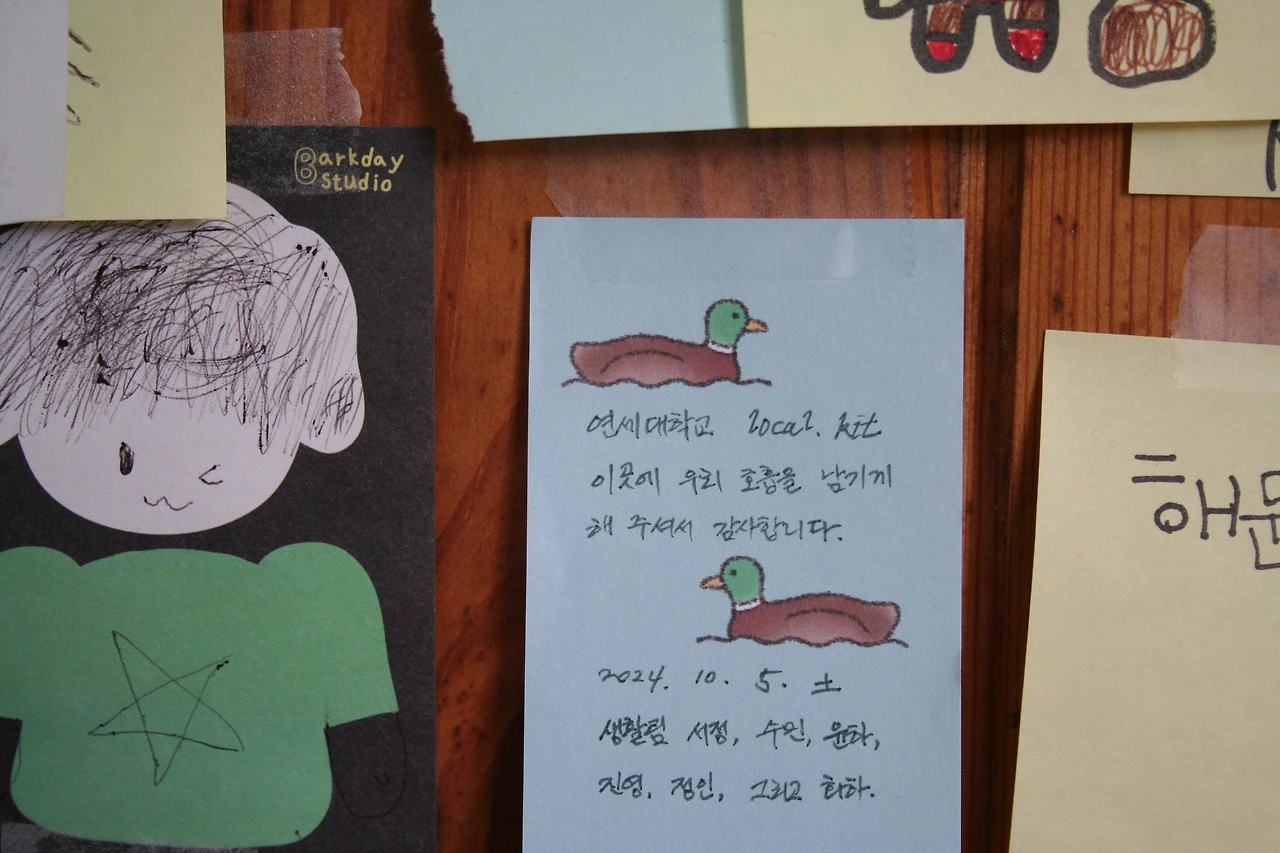 Barkday
studio
연세대학교 local. kit
이곳에 우리 호흡을 남기게
해 주셔서 감사합니다.
2024. 10. 5. 土
생활팀 서정, 수민, 윤하,
진영, 정인, 그리고 화하.
해